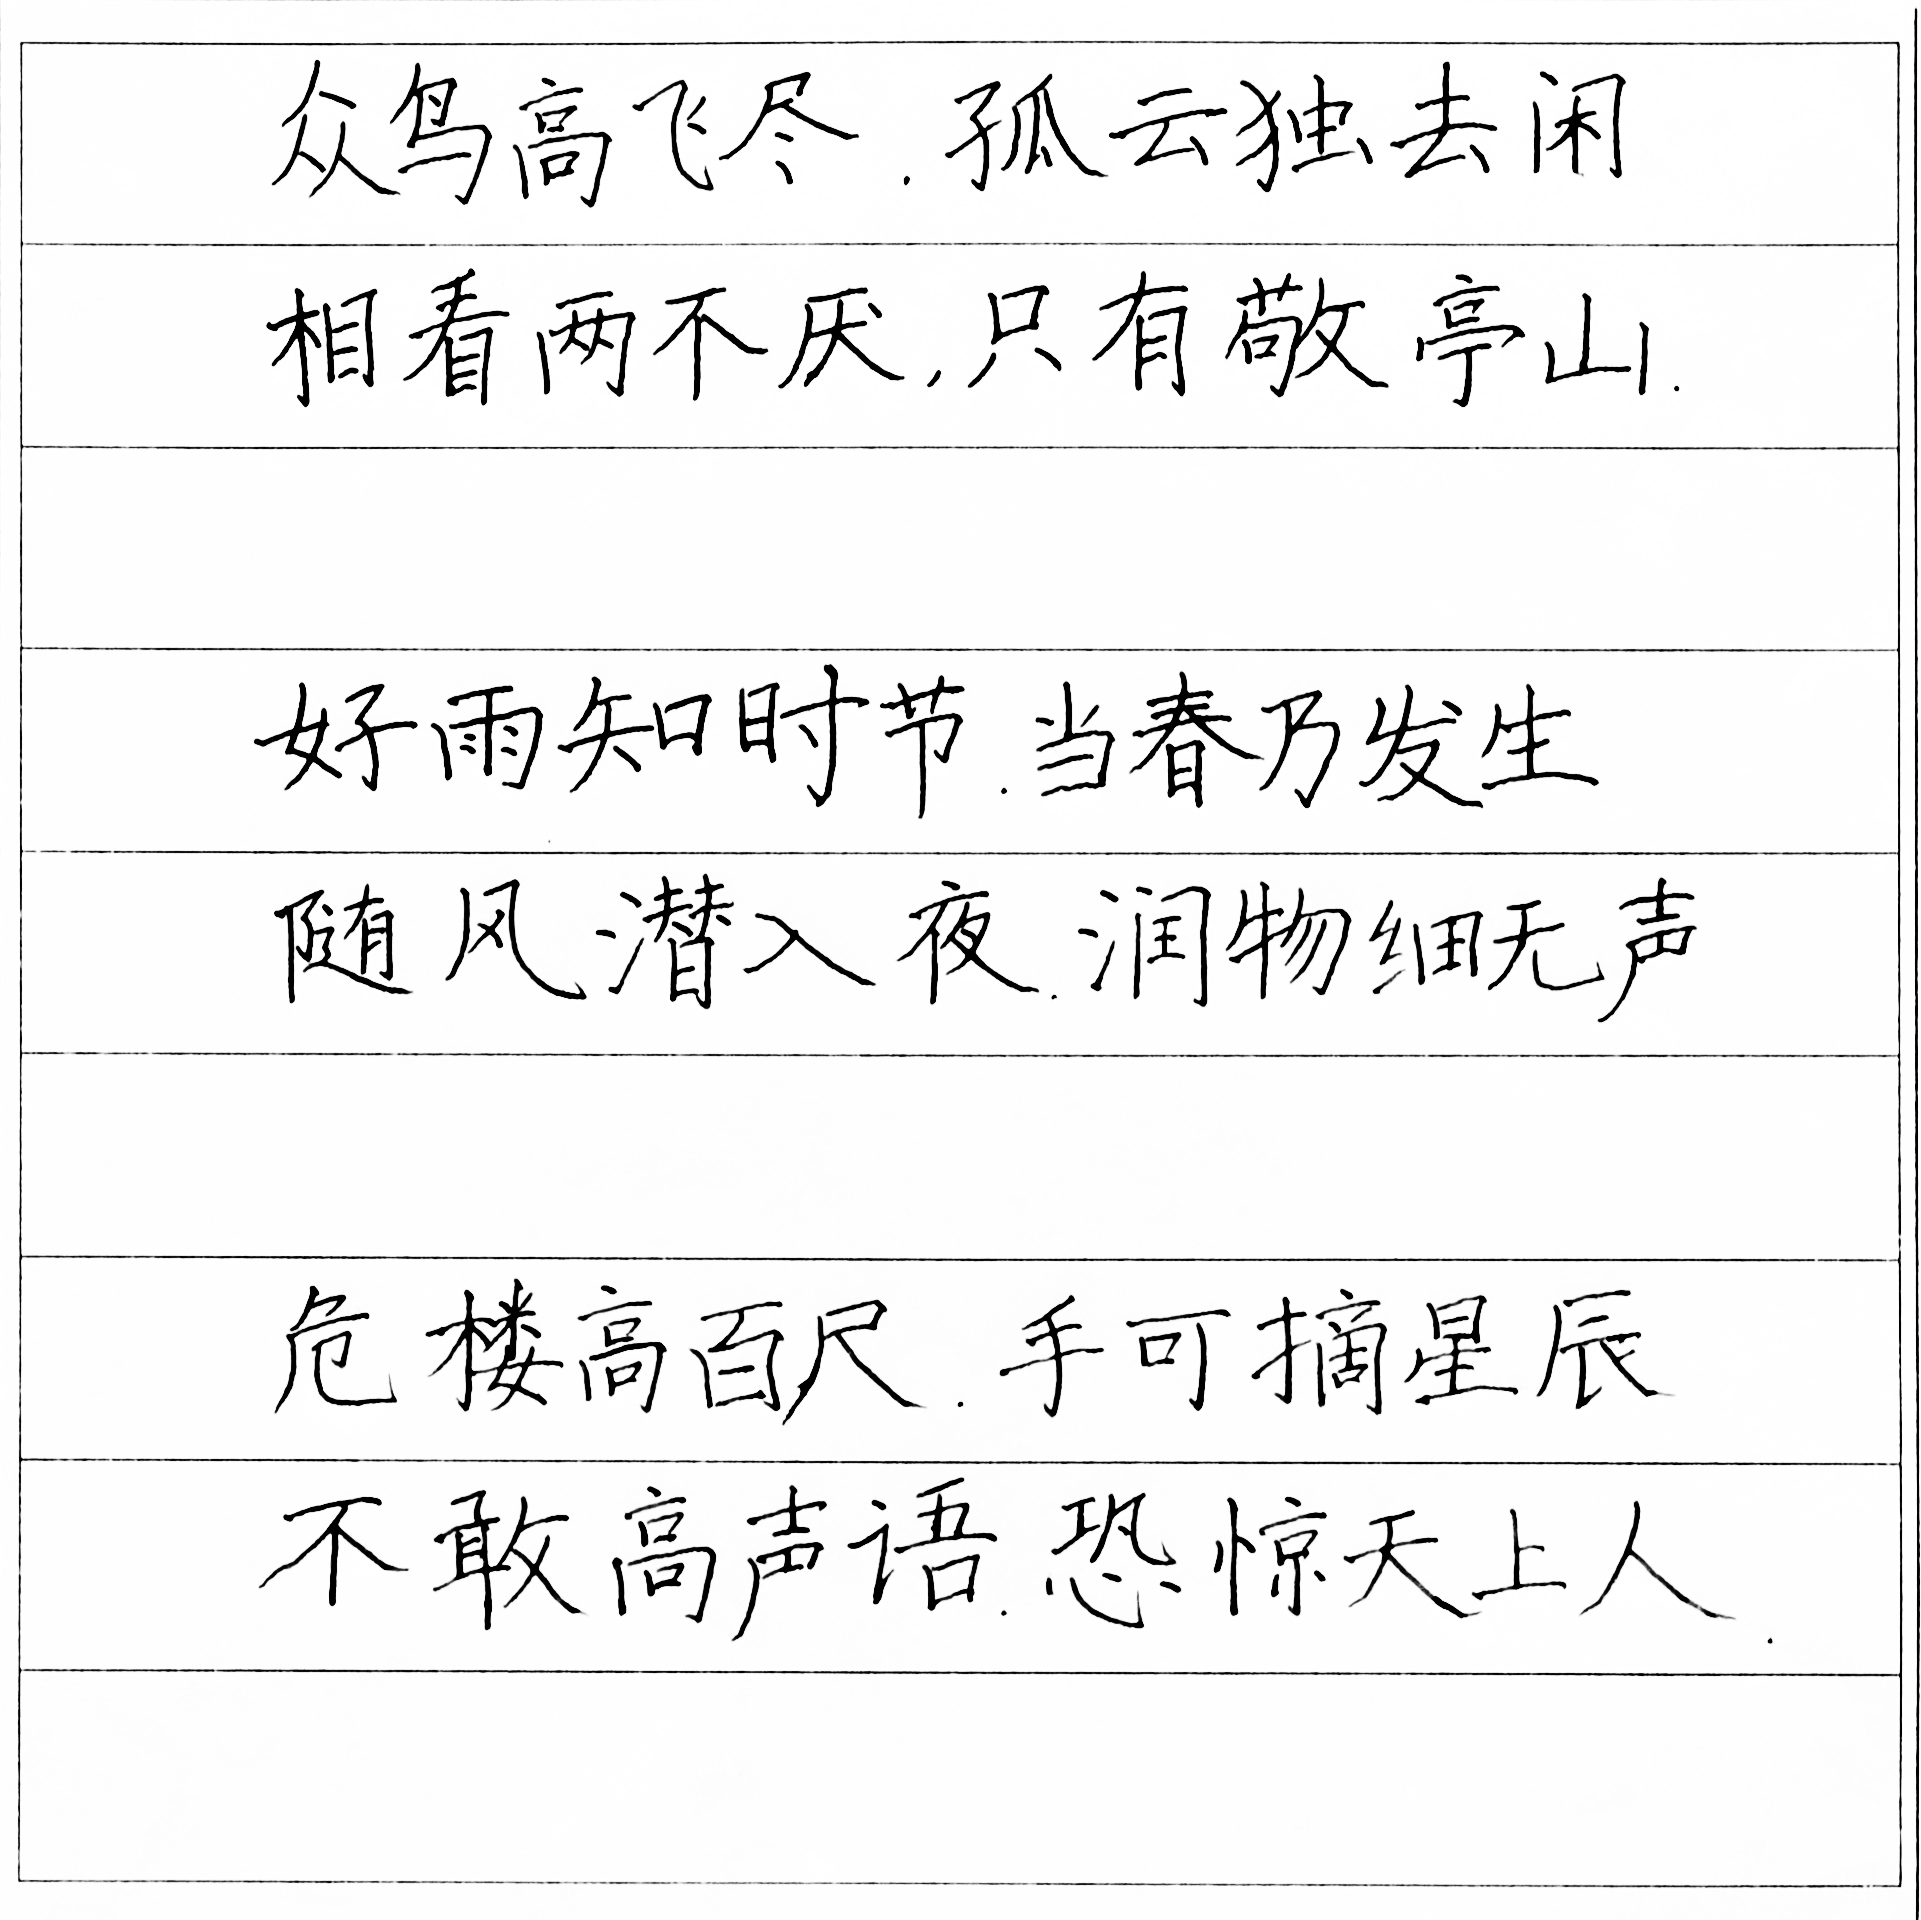 众鸟高飞尽.孤云独去闲
相看两不厌,只有敬亭山.
好雨知时节.当春乃发生
随风潜入夜.润物细无声
危楼高百尺.手可摘星辰
不敢高声语.恐惊天上人.